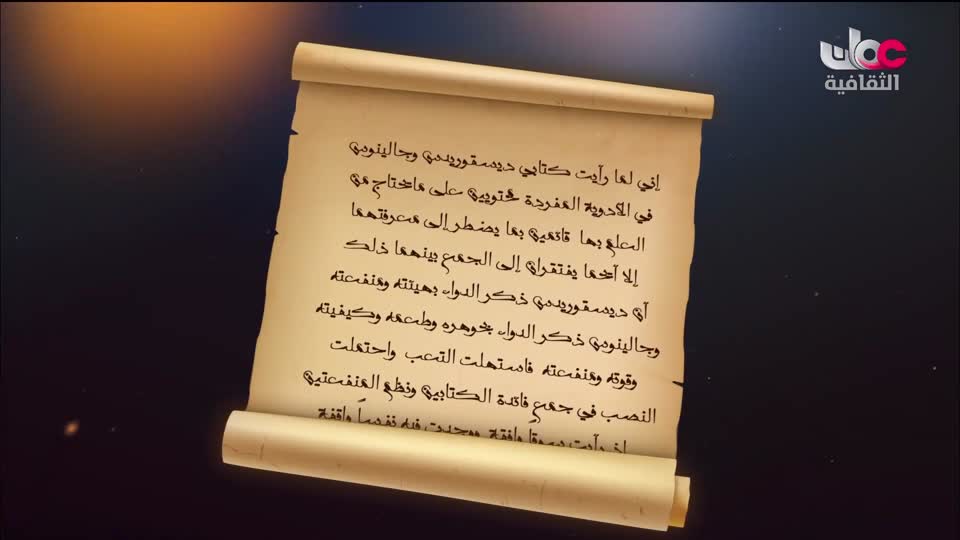 عمان
الثقافية
إني لما رأيت كتابي ديسقوريدس وجالينوس
في الأدوية المفردة محتويين على مايحتاج من
العلم بها قائمين بما يضطر إلى معرفتهما
إلا أنهما يفتقران إلى الجمع بينهما ذلك
أن ديسقوريدس ذكر الدواء بهيئته ومنفعته
وجالينوس ذكر الدواء بجوهره وطعمه وكيفيته
وقوته ومنفعته فاستهلت التعب واحتملت
النصب في جمع فائدة الكتابين ونظم المنفعتين
إذ رأيت سوقاً واقفة ووجدت فيه نفساً واقفة